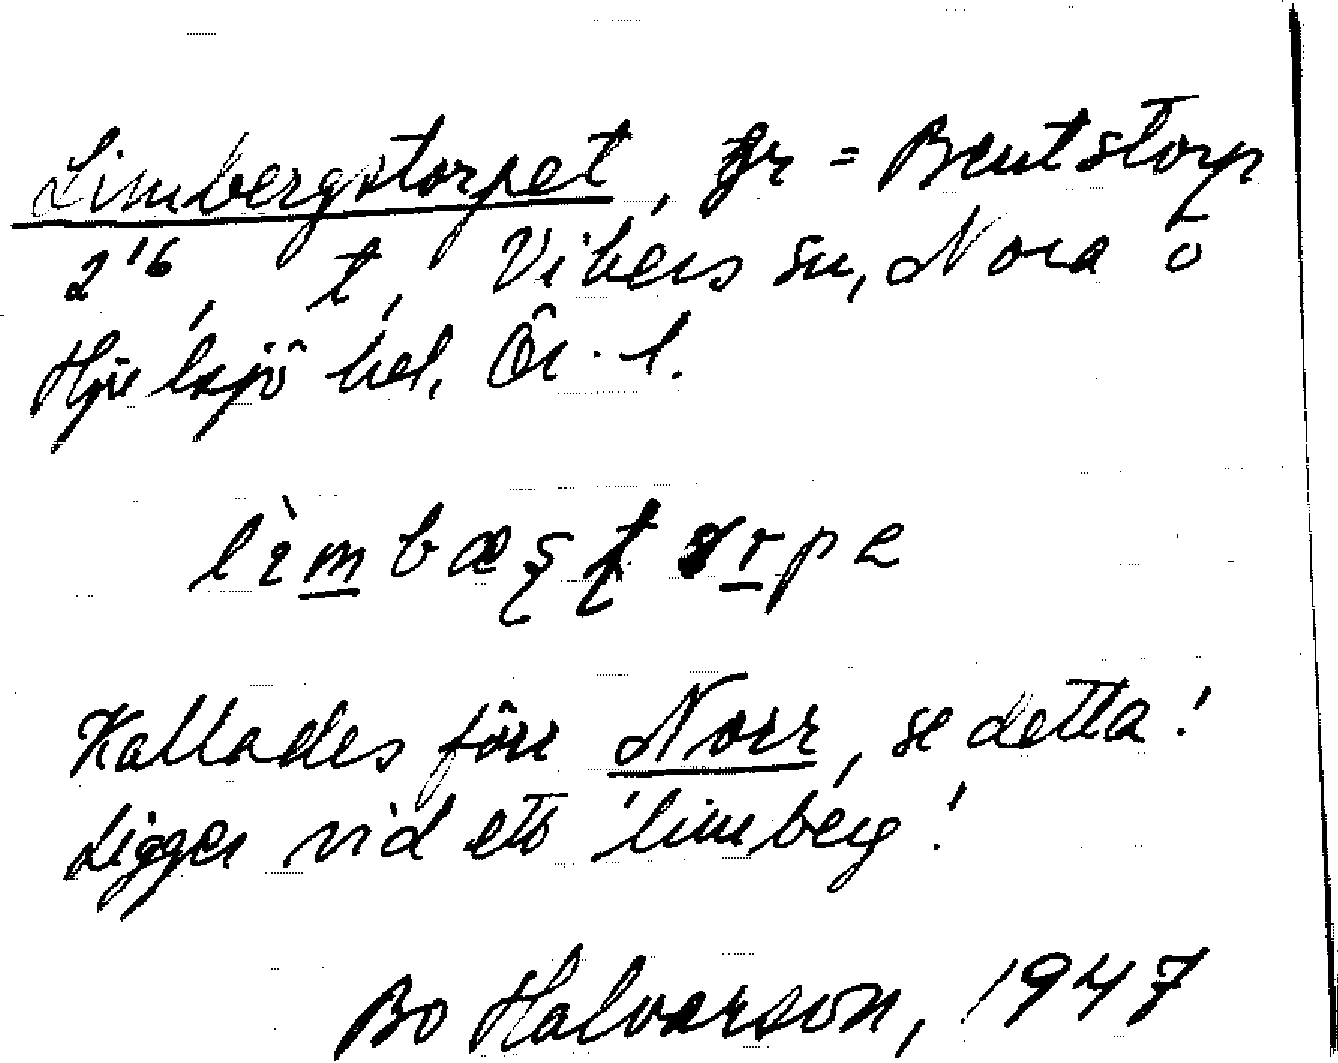 Limbergstorpet, gr = Bentstorp
2¹⁶, t, Vibers sn, Nora o
Hjulsjö hd, Ör. l.
lìmbæʂʈɤrpe
Kallades förr Norr, se detta!
Ligger vid ett 'limberg'!
Bo Halvarson, 1947